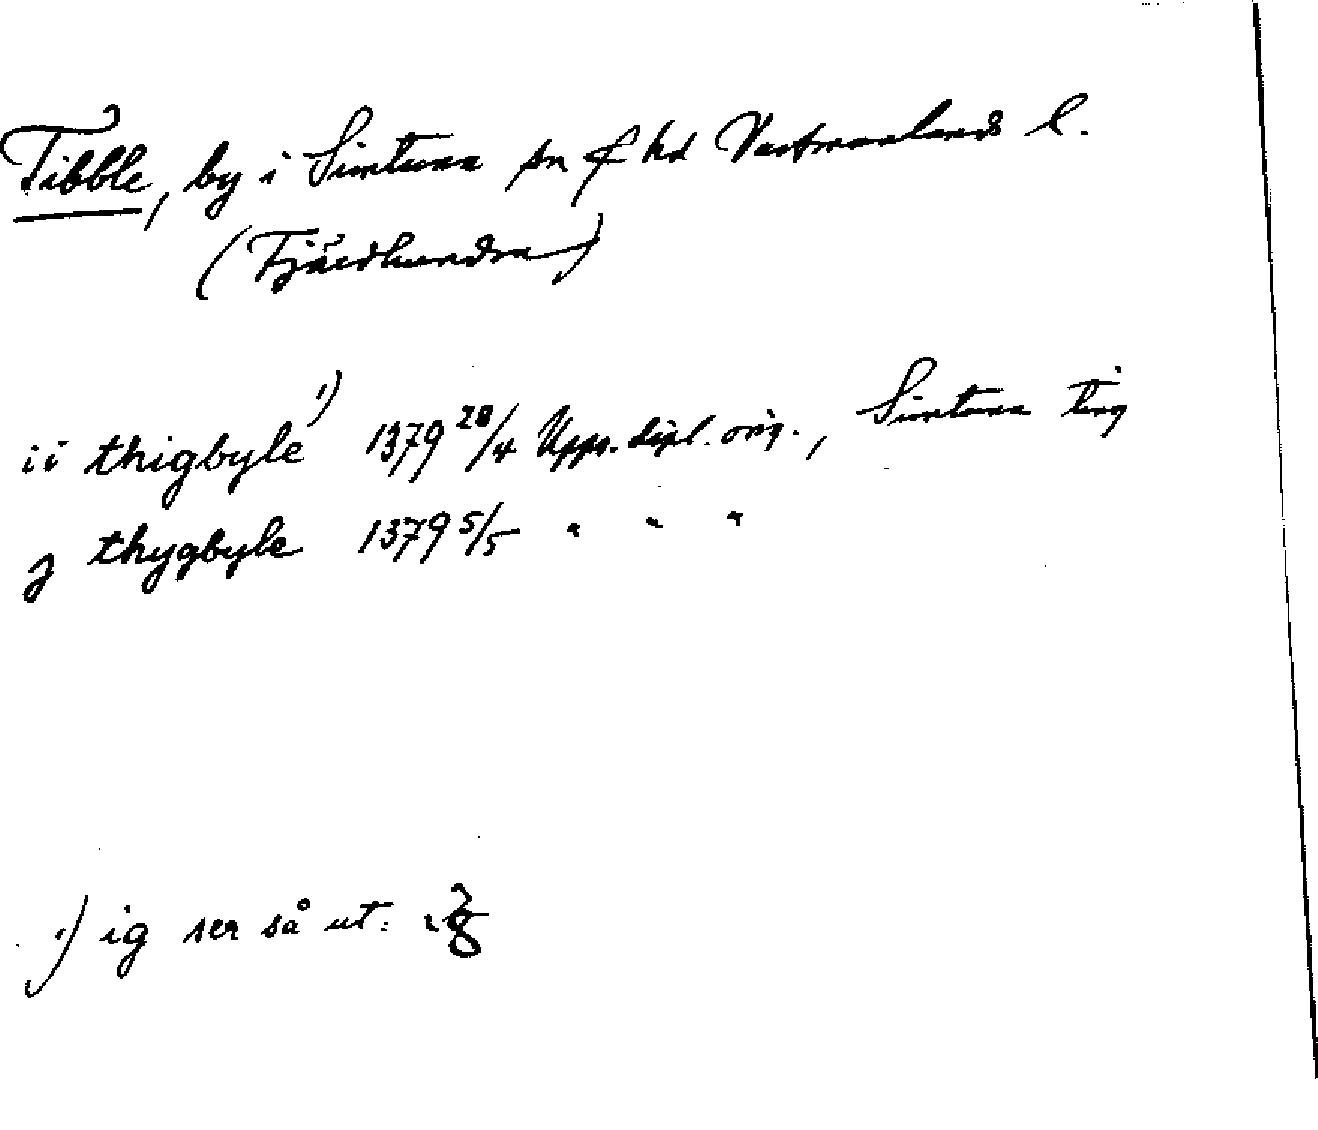 Tibble, by i Simtuna sn f hd Västmanlands l.
(Fjärdhundra)
ii thigbyle 1) 1379 28/4 Upps. dipl. orig., Simtuna ting
j thygbyle 1379 5/5 " " "
1) ig ser så ut: